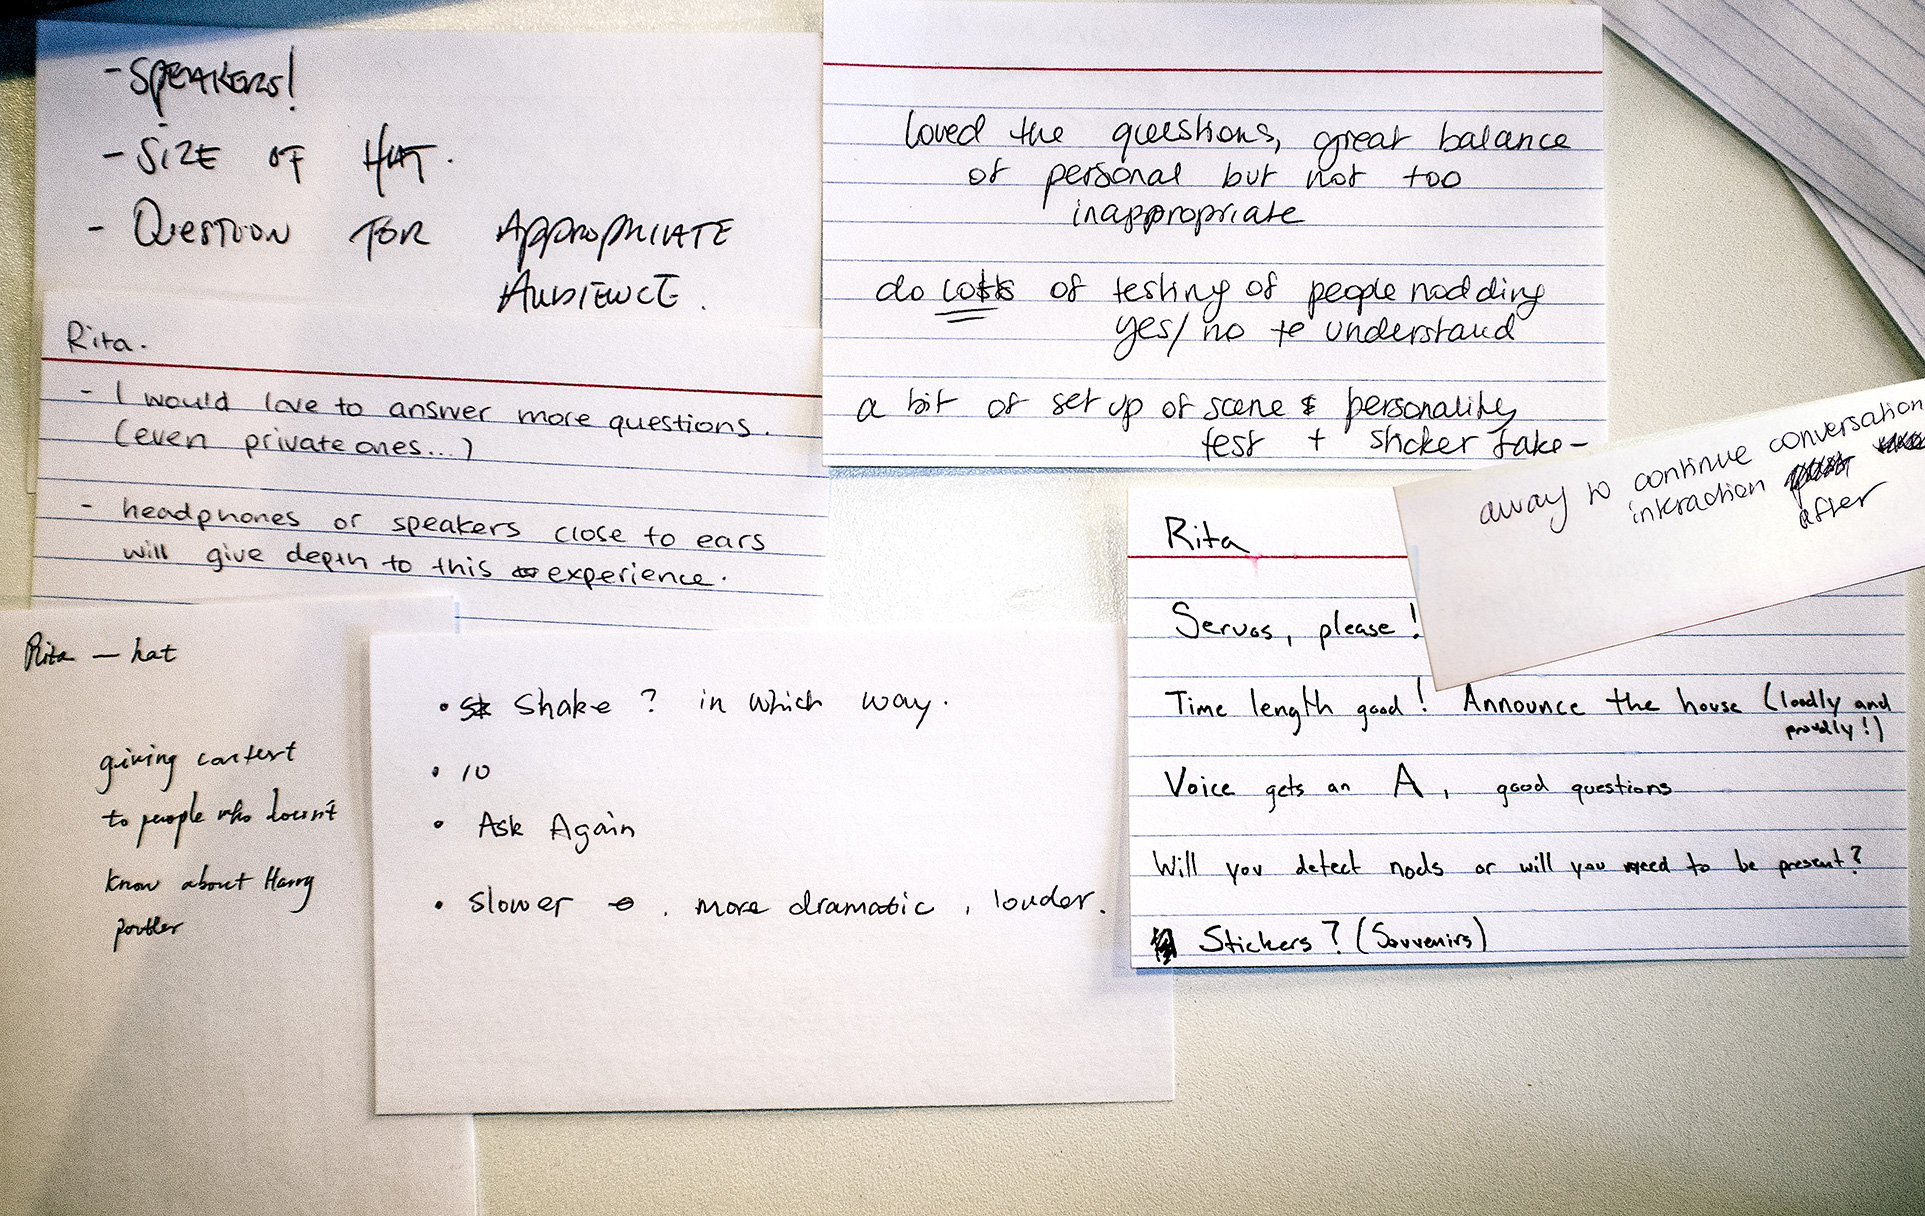 - SPEAKERS!
- SIZE OF HAT.
- QUESTION FOR APPROPRIATE
AUDIENCE.
loved the questions, great balance
of personal but not too
inappropriate
do lots of testing of people nodding
yes/no to understand
a bit of set up of scene & personality
test + sticker take-
away to continue conversation
interaction
after
Rita.
- I would love to answer more questions.
(even private ones...)
- headphones or speakers close to ears
will give depth to this experience.
Rita — hat
giving context
to people who doesn't
know about Harry
potter
• Shake? in which way.
• 10
• Ask Again
• Slower, more dramatic, louder.
Rita
Servos, please!
Time length good! Announce the house (loudly and
proudly!)
Voice gets an A, good questions
Will you detect nods or will you need to be present?
Stickers? (Souvenirs)